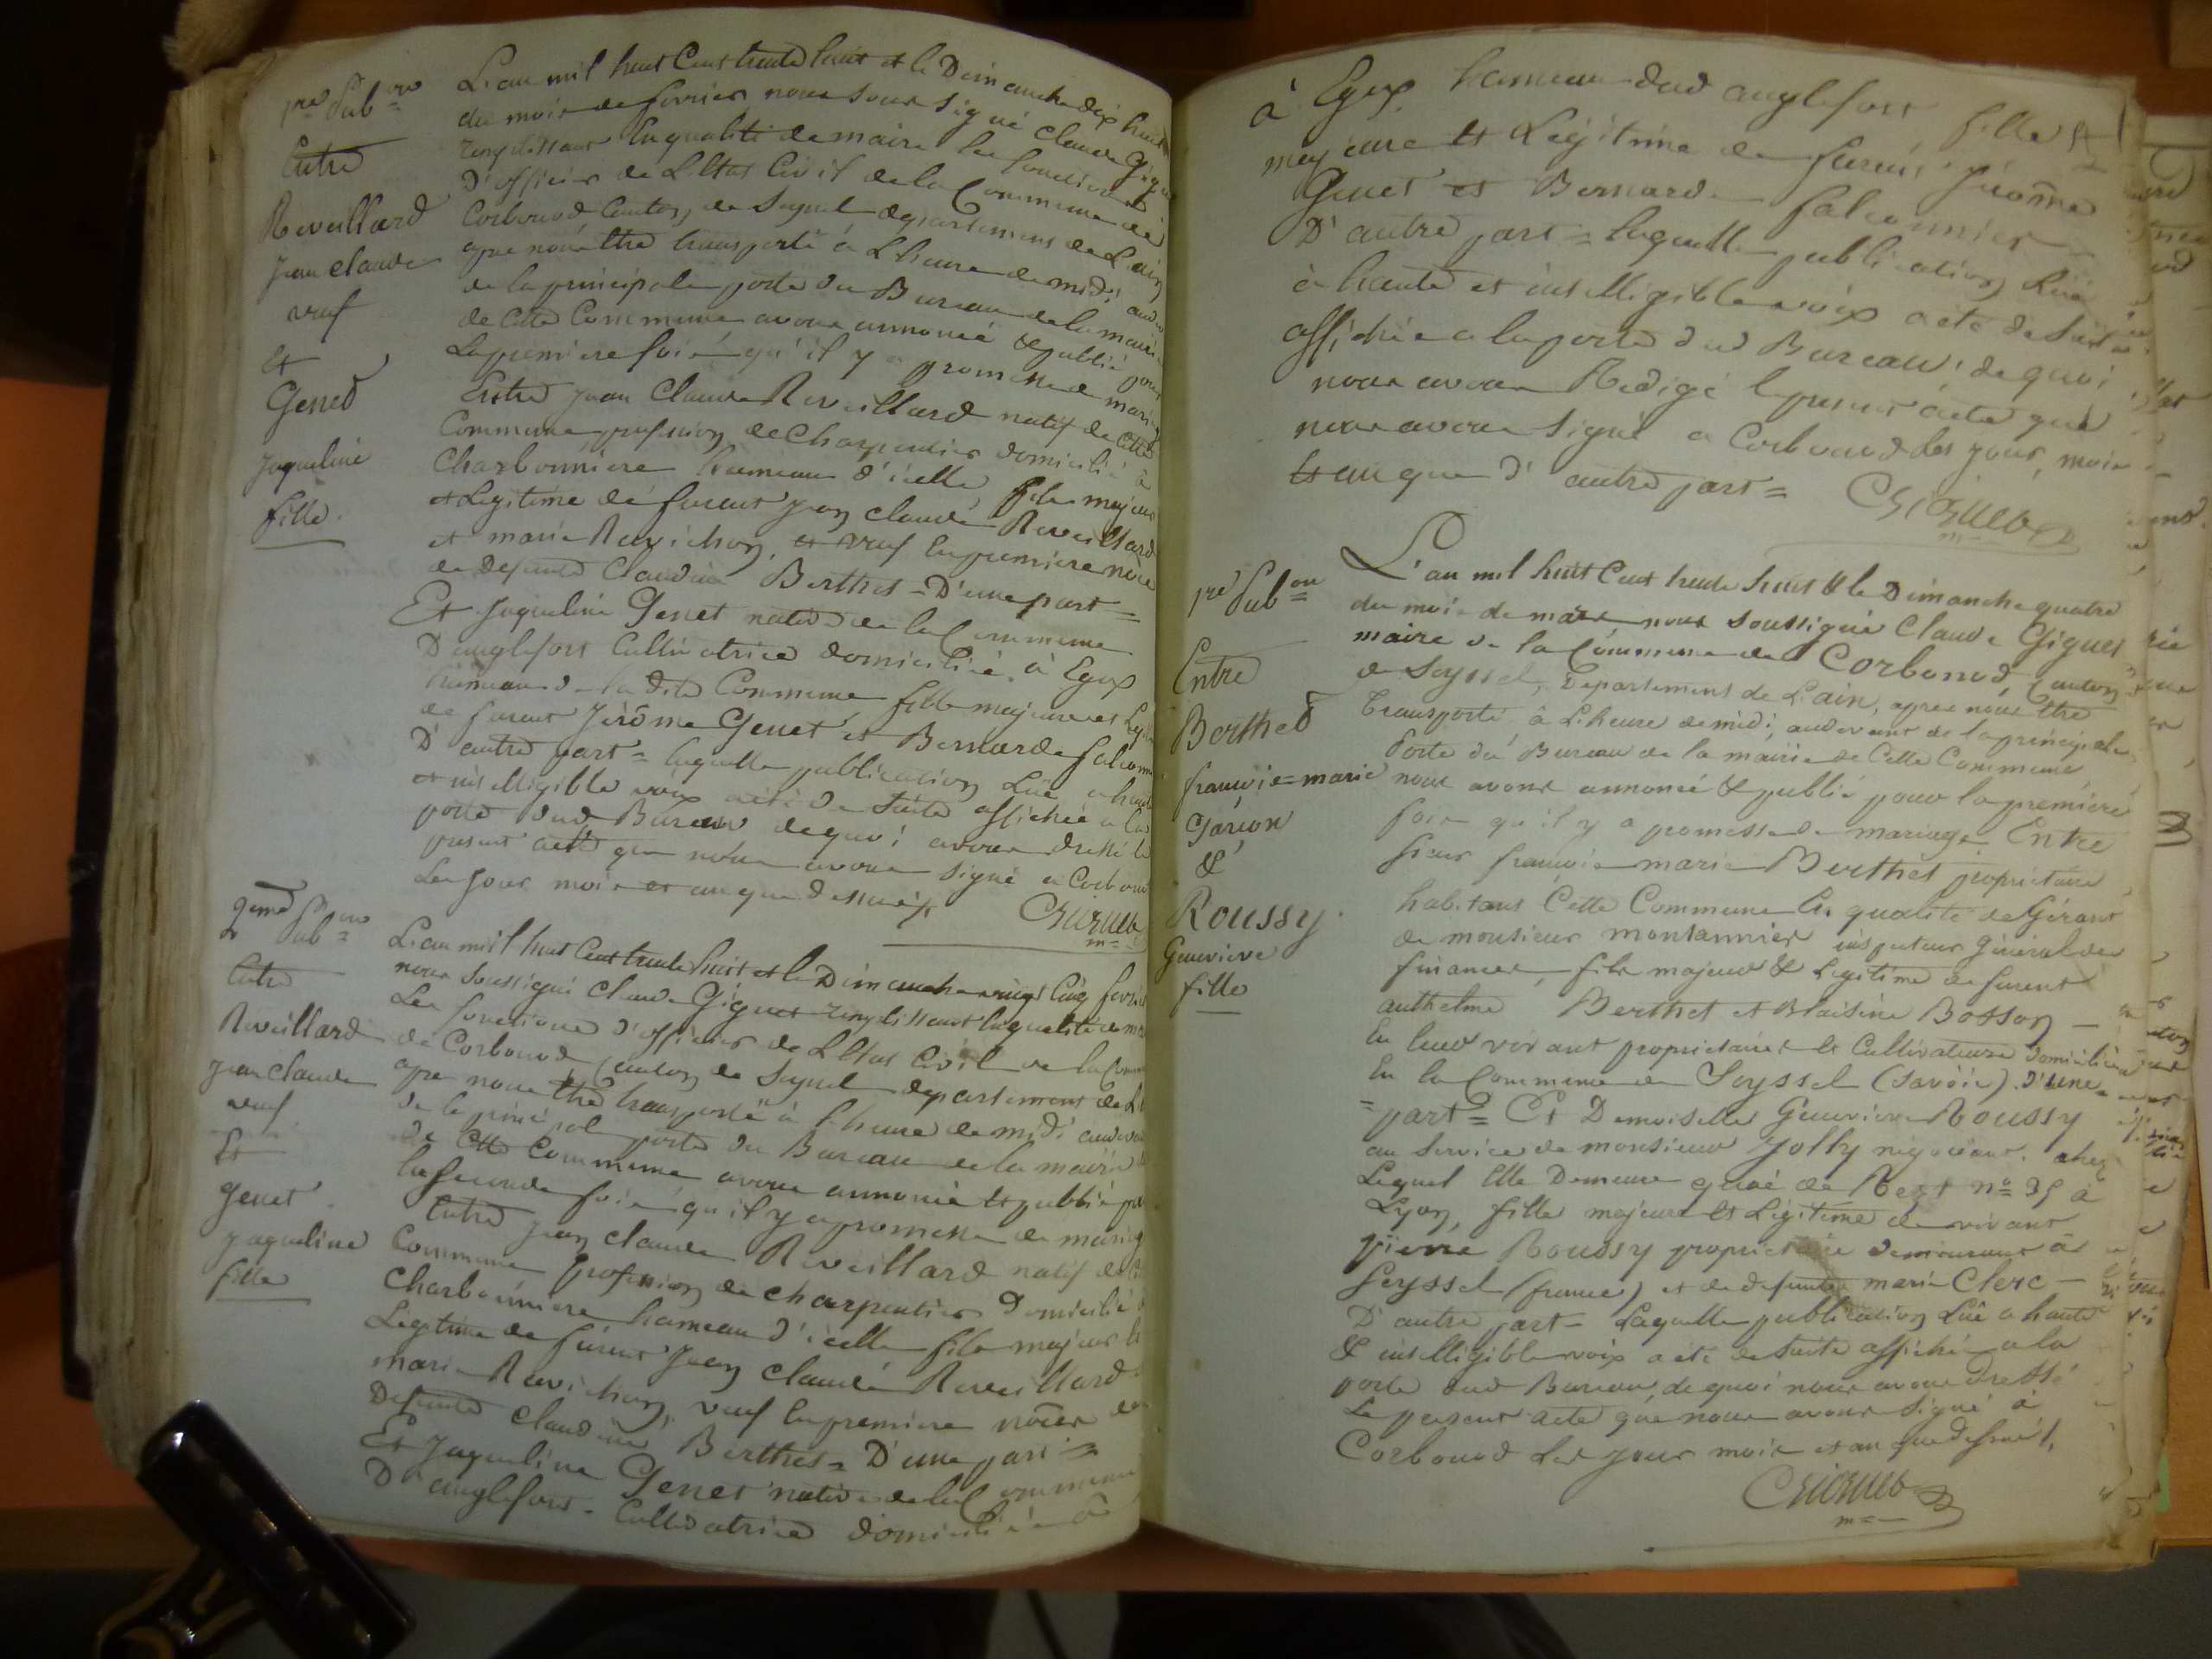 pre Pub.on
Entre
Reveillard
jean claude
veuf
et
Genet
jaqueline
fille.
L'an mil huit Cent trente huit et le Dimanche dix huit
du mois de fevrier nous sous signé Claude Giguet
remplissant la qualité de maire les fonctions
D'officier de L'Etat Civil de la Commune de
Corbonod Canton de Seyssel departement de L'ain
apres nous être transporté à L'heure de midi audev
de la principale porte du Bureau de la mairie
de Cette Commune avons annoncé & publié pour
La premiere fois qu'il y a promesse de mari
Entre jean Claude Reveillard natif de Cette
Commune, profession de Charpentier domicilié à
Charbonniere hameau d'icelle, fils majeur
et Legitime de furent jean claude Reveillard
et marie Ravichon, et veuf en premiere noce
de defunte Claudine Berthet = D'une part =
Et Jaqueline Genet native de la Commune
D'anglefort Cultivatrice domiciliée à Egex
hameau de la dite Commune fille majeure et Legit
de furent Jérôme Genet et Bernarde falconn
D'autre part = laquelle publication Lue a haute
et intelligible voix a été de suite affichée a la
porte dud Bureau de quoi avons dressé le
present acte que nous avons signé a Corbonod
Les jour mois et an que dessus
Giguet
m=
2eme Pub.on
Entre
Reveillard
jean claude
veuf
Et
genet
jaqueline
fille
L'an mil huit Cent trente huit et le Dimanche vingt Cinq fevrier
nous soussigné Claude Giguet remplissant la qualité de mai
Les fonctions d'officier de L'Etat Civil de la Commu
de Corbonod, Canton de Seyssel departement de L'
apres nous être transporté à L'heure de midi audevant
de la principale porte du Bureau de la mairie
de Cette Commune avons annoncé et publié pour
la seconde fois qu'il y a promesse de mariag
Entre jean claude Reveillard natif de Ce
Commune profession de Charpentier Domicilié
Charbonniere hameau d'icelle fils majeur &
Legitime de furent Jean Claude Reveillard
marie Ravichon, veuf en premiere noces de
Defunte Claudine Berthet = D'une part =
Et Jaqueline Genet native de la Commune
D'anglefort. Cultivatrice domiciliée à
à Egex hameau dud anglefort fille
majeure et Legitime de furent jérome
Genet et Bernarde falconnier
D'autre part = laquelle publication Lue
à haute et intelligible voix a été de suite
affichée a la porte dud Bureau, de quoi
nous avons Redigé le present acte que
nous avons signé a Corbonod les jour, mois
et an que d'autre part =
Giguet
m=
pre Pub.on
Entre
Berthet
francois=marie
Garçon
&
Roussy.
Genevieve
fille
L'an mil huit Cent trente huit & le Dimanche quatre
du mois de mars nous soussigné Claude Giguet
maire de la Commune de Corbonod, Canton
de Seyssel, Departement de L'ain, apres nous être
Transporté à L'heure de midi, audevant de la principale
Porte du Bureau de la mairie de Cette Commune,
nous avons annoncé & publié pour la premiere
fois qu'il y a promesse de mariage Entre
sieur francois marie Berthet propriétaire
habitant Cette Commune En qualité de Gérant
de monsieur montannier inspecteur général des
finances, fils majeur & Legitime de furent
anthelme Berthet et Blaisine Bosson —
En leur vivant propriétaires et Cultivateurs domiciliés
En la Commune de Seyssel (Savoie). d'une
=part= Et Demoiselle Genevieve Roussy
au service de monsieur Jolly negociant. chez
Lequel Elle Demeure quai de Retz n° 35 à
Lyon, fille majeure et Légitime de vivant
pierre Roussy propriétaire demeurant à
Seyssel (france) et de defunte marie Clerc —
D'autre part = Laquelle publication Lue a haute
& intelligible voix a été de suite affichée a la
porte dud Bureau, de quoi nous avons dressé
Le present acte que nous avons signé à
Corbonod Les jour mois et an que dessus.
Giguet
m=